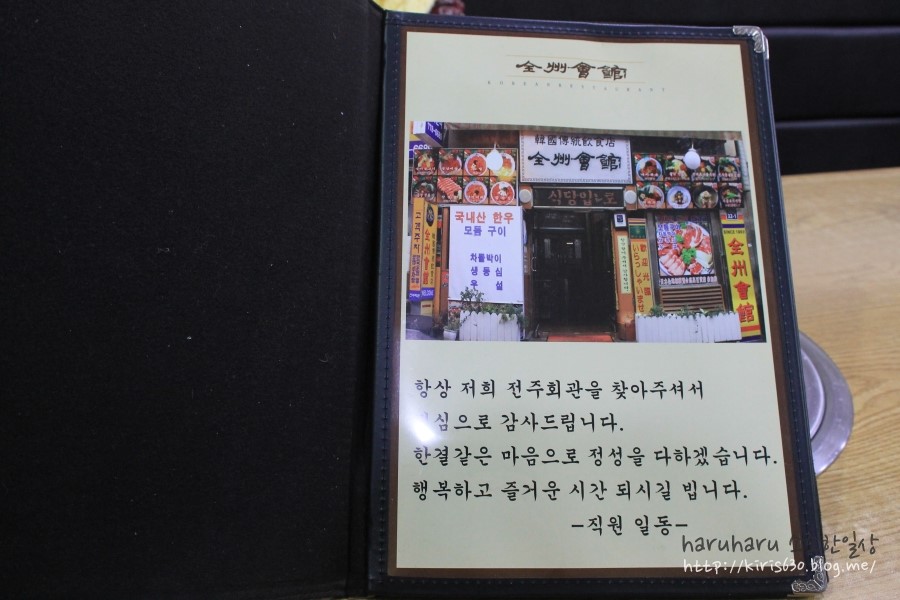 全州會館
KOREAN RESTAURANT
韓國傳統飮食店
全州會館
식당입구
국내산 한우
모듬 구이
차돌박이
생등심
우설
全州會館
いらっしゃいませ
全州會館
항상 저희 전주회관을 찾아주셔서
심으로 감사드립니다.
한결같은 마음으로 정성을 다하겠습니다.
행복하고 즐거운 시간 되시길 빕니다.
-직원 일동-
haruharu 한일상
http://kiris630.blog.me/